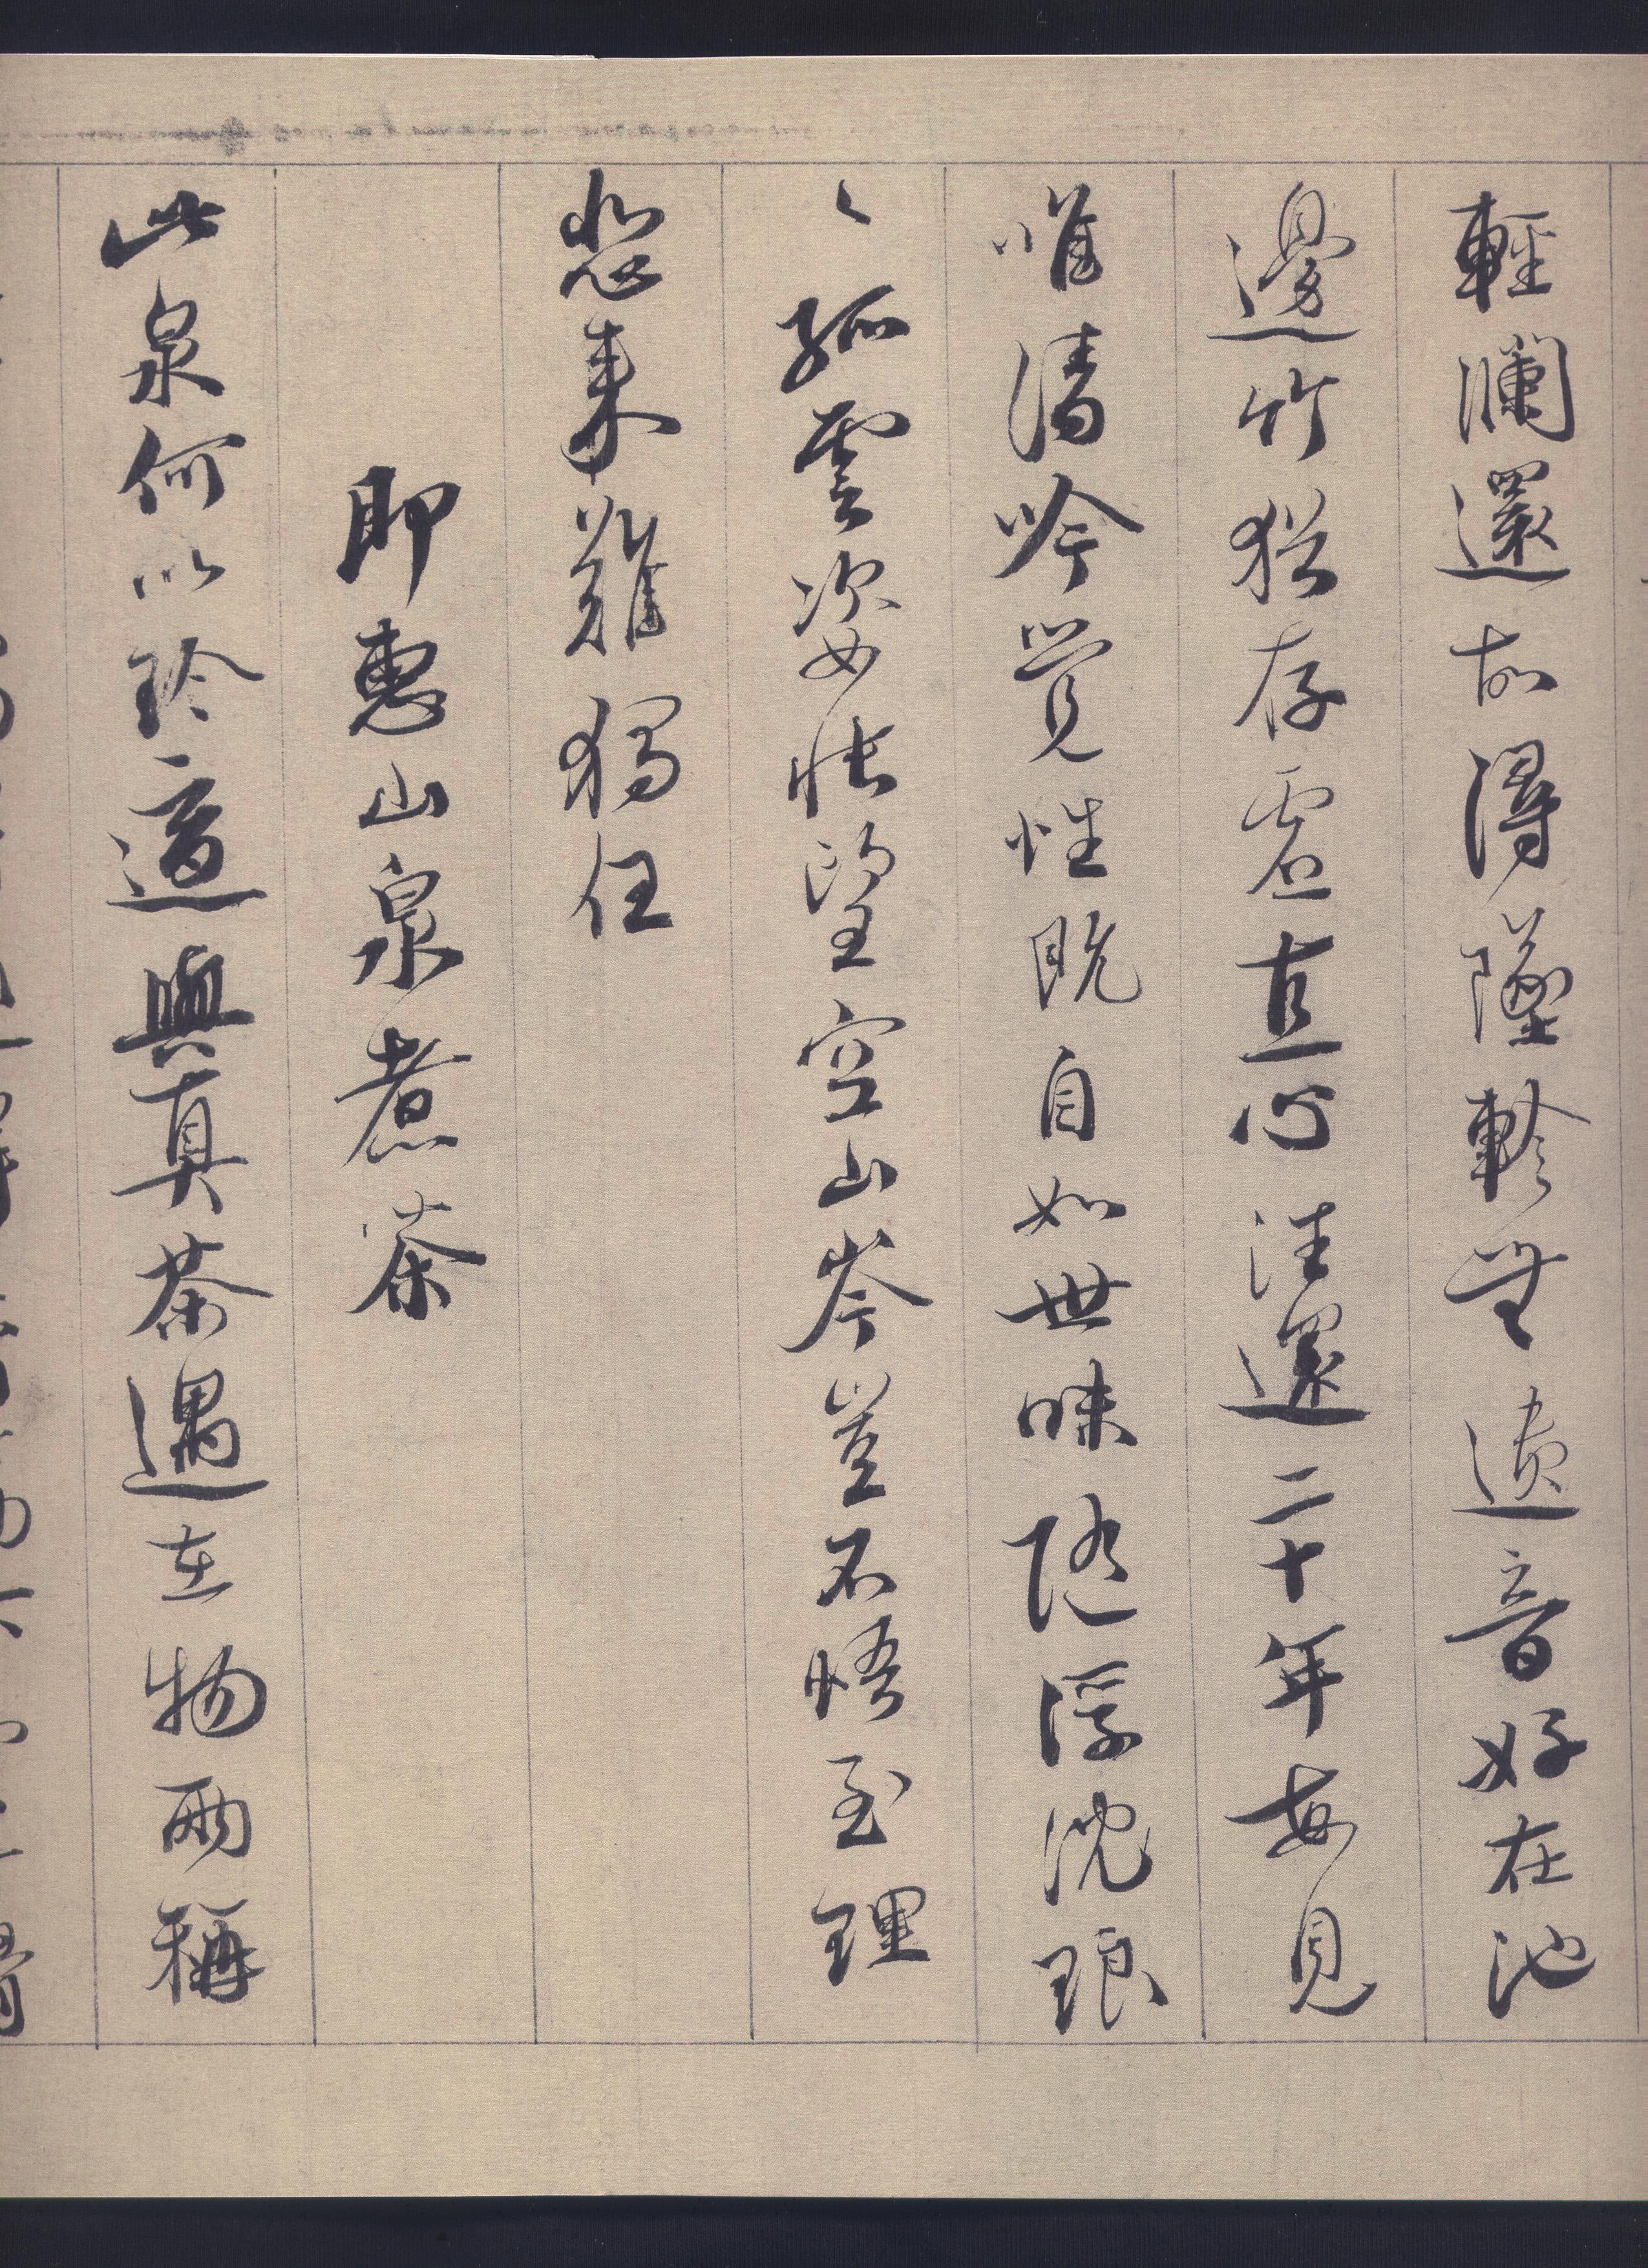 輕瀾還故潯墜軫無遺音好在池
邊竹猶存虛直心往還二十年每見
唯清吟覺性既自如世味隨浮沈琅
〻孤雲姿悵望空山岑豈不悟至理
悲來難獨任
即惠山泉煮茶
此泉何以珍適與真茶遇在物兩稱